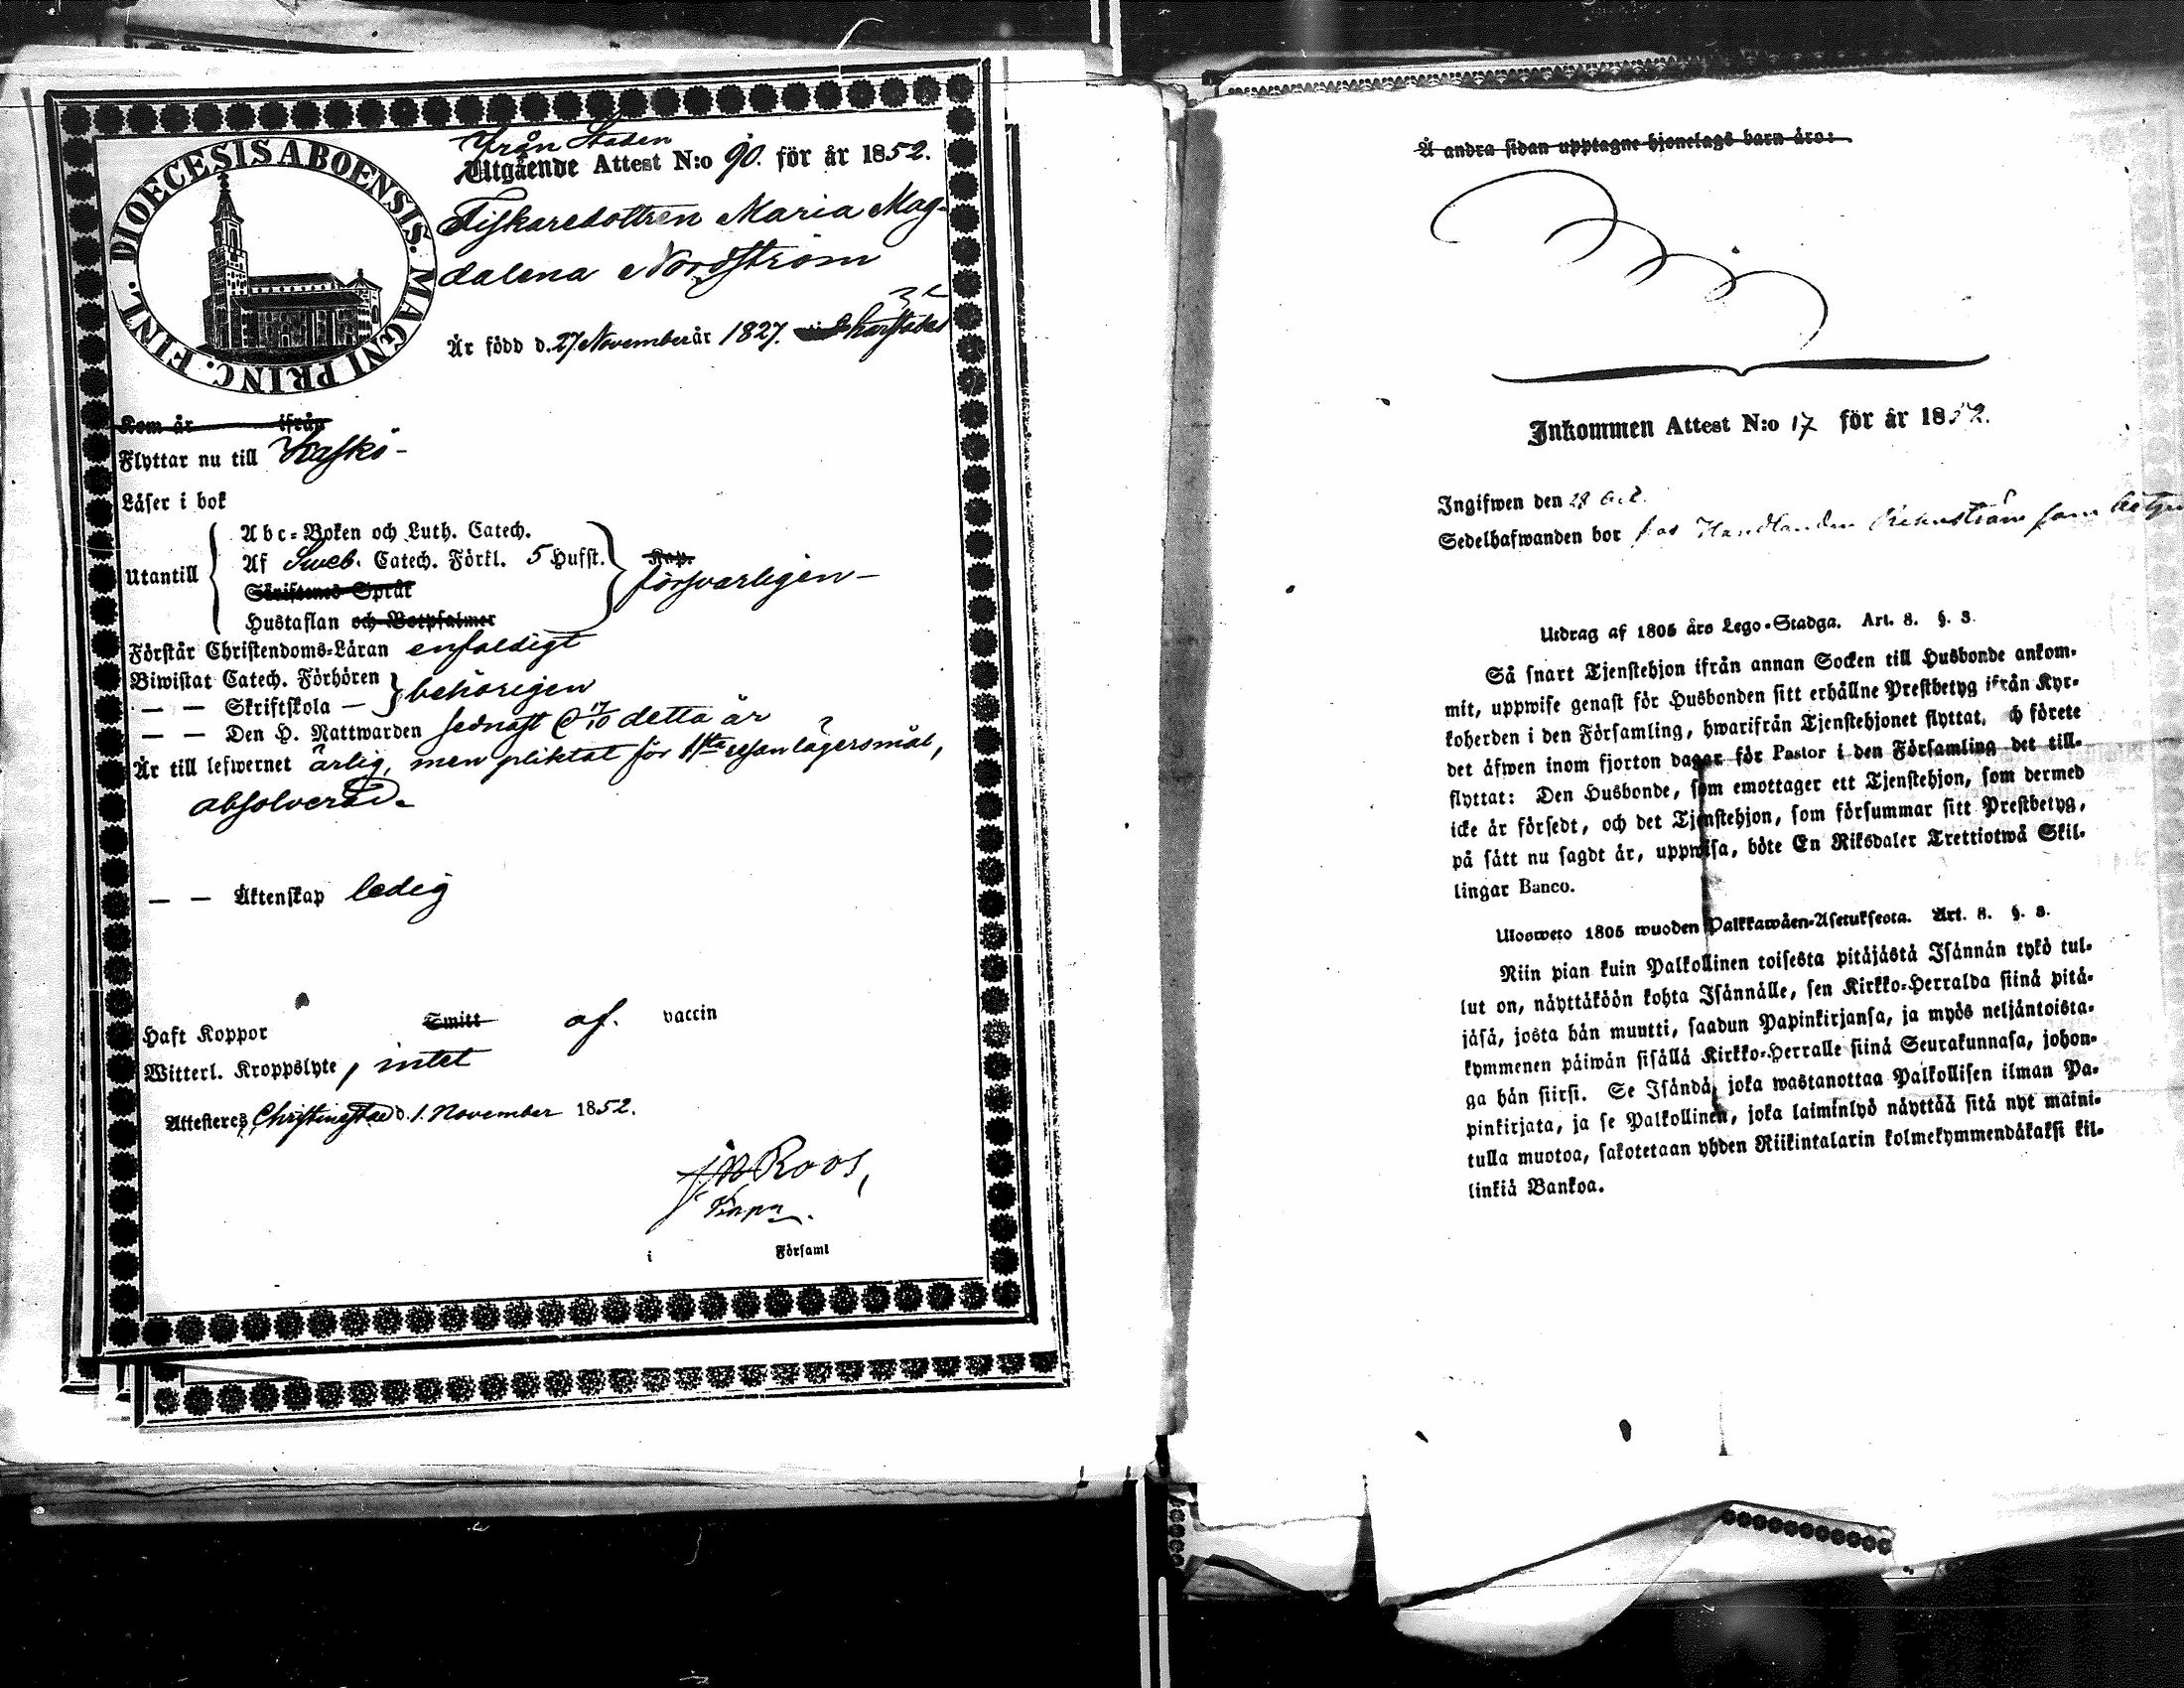 DIOECESIS ABOENSIS. MAGNI PRINC. FINL.
Från Staden
Utgående Attest N:o 90. för år 1852.
Fiskaredottren Maria Mag-
dalena Nordström
Är född d. 27 November år 1827.
Kom år ifrån
Flyttar nu till Kaskö -
Läser i bok
Utantill
Abc-Boken och Luth. Catech.
Af Sweb. Catech. Förkl. 5 Hufst.
Skriftenes Språk
Hustaflan och Botpsalmer
Kap.
försvarligen -
Förstår Christendoms-Läran enfaldigt
Biwistat Catech. Förhören
— — Skriftskola — behörigen
— — Den H. Nattwarden sednast d 17/10 detta år
Är till lefwernet ärlig, men pliktat för 1sta resan lägersmål,
absolverad.
— — Äktenskap ledig
Haft Koppor Smitt af. vaccin
Witterl. Kroppslyte, intet
Attesteres Christinestad d. 1. November 1852.
Roos,
i Församl
Å andra sidan upptagne hjonelags barn äro:
Inkommen Attest N:o 17 för år 1852.
Ingifwen den 28
Sedelhafwanden bor hos Handlanden som
Utdrag af 1805 års Lego-Stadga. Art. 8. §. 3.
Så snart Tjenstehjon ifrån annan Socken till Husbonde ankom-
mit, uppwise genast för Husbonden sitt erhållne Prestbetyg ifrån Kyr-
koherden i den Församling, hwarifrån Tjenstehjonet flyttat, och förete
det äfwen inom fjorton dagar för Pastor i den Församling det till-
flyttat: Den Husbonde, som emottager ett Tjenstehjon, som dermed
icke är försedt, och det Tjenstehjon, som försummar sitt Prestbetyg,
på sätt nu sagdt är, uppwisa, böte En Riksdaler Trettiotwå Skil-
lingar Banco.
Ulosweto 1805 wuoden Palkkawäen-Asetuksesta. Art. 8. §. 3.
Niin pian kuin Palkollinen toisesta pitäjästä Isännän tykö tul-
lut on, näyttäköön kohta Isännälle, sen Kirkko-Herralda siinä pitä-
jäsä, josta hän muutti, saadun Papinkirjansa, ja myös neljäntoista-
kymmenen päiwän sisällä Kirkko-Herralle siinä Seurakunnasa, johon-
ga hän siirsi. Se Isändä, joka wastanottaa Palkollisen ilman Pa-
pinkirjata, ja se Palkollinen, joka laiminlyö näyttää sitä nyt maini-
tulla muotoa, sakotetaan yhden Riikintalarin kolmekymmendäkaksi kil-
linkiä Bankoa.